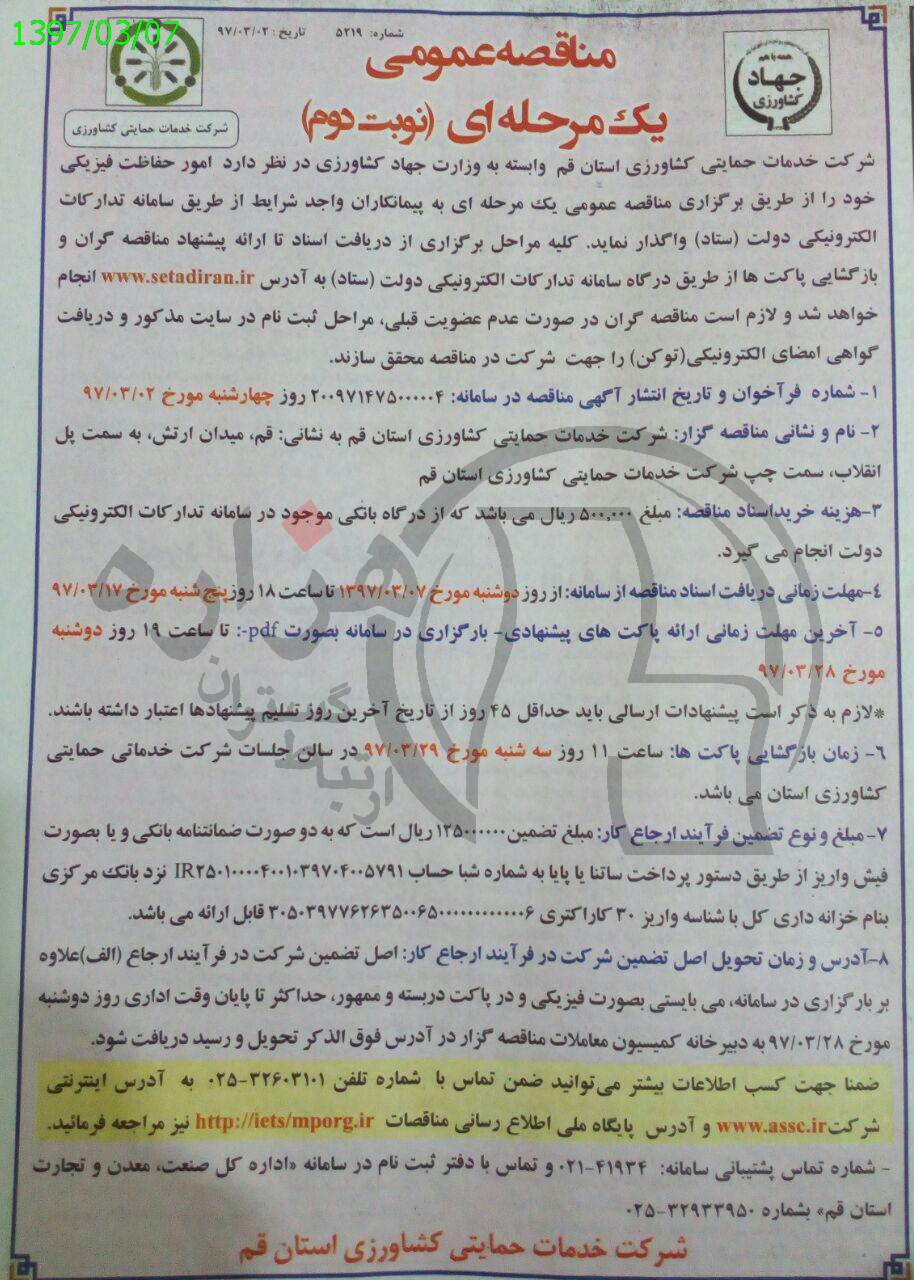 1397/03/07
شماره: ۵۲۱۹ تاریخ: ۹۷/۰۳/۰۲
مناقصه عمومی
یک مرحله ای (نوبت دوم)
همه با هم
جهاد
کشاورزی
شرکت خدمات حمایتی کشاورزی
شرکت خدمات حمایتی کشاورزی استان قم وابسته به وزارت جهاد کشاورزی در نظر دارد امور حفاظت فیزیکی
خود را از طریق برگزاری مناقصه عمومی یک مرحله ای به پیمانکاران واجد شرایط از طریق سامانه تدارکات
الکترونیکی دولت (ستاد) واگذار نماید. کلیه مراحل برگزاری از دریافت اسناد تا ارائه پیشنهاد مناقصه گران و
بازگشایی پاکت ها از طریق درگاه سامانه تدارکات الکترونیکی دولت (ستاد) به آدرس www.setadiran.ir انجام
خواهد شد و لازم است مناقصه گران در صورت عدم عضویت قبلی، مراحل ثبت نام در سایت مذکور و دریافت
گواهی امضای الکترونیکی(توکن) را جهت شرکت در مناقصه محقق سازند.
۱- شماره فرآخوان و تاریخ انتشار آگهی مناقصه در سامانه: ۲۰۰۹۷۱۴۷۵۰۰۰۰۰۴ روز چهارشنبه مورخ ۹۷/۰۳/۰۲
۲- نام و نشانی مناقصه گزار: شرکت خدمات حمایتی کشاورزی استان قم به نشانی: قم، میدان ارتش، به سمت پل
انقلاب، سمت چپ شرکت خدمات حمایتی کشاورزی استان قم
۳-هزینه خریداسناد مناقصه: مبلغ ۵۰۰,۰۰۰ ریال می باشد که از درگاه بانکی موجود در سامانه تدارکات الکترونیکی
دولت انجام می گیرد.
۴-مهلت زمانی دریافت اسناد مناقصه از سامانه: از روز دوشنبه مورخ ۱۳۹۷/۰۳/۰۷ تا ساعت ۱۸ روز پنج شنبه مورخ ۹۷/۰۳/۱۷
۵- آخرین مهلت زمانی ارائه پاکت های پیشنهادی- بارگزاری در سامانه بصورت pdf-: تا ساعت ۱۹ روز دوشنبه
مورخ ۹۷/۰۳/۲۸
*لازم به ذکر است پیشنهادات ارسالی باید حداقل ۴۵ روز از تاریخ آخرین روز تسلیم پیشنهادها اعتبار داشته باشند.
۶- زمان بازگشایی پاکت ها: ساعت ۱۱ روز سه شنبه مورخ ۹۷/۰۳/۲۹ در سالن جلسات شرکت خدماتی حمایتی
کشاورزی استان می باشد.
۷- مبلغ و نوع تضمین فرآیند ارجاع کار: مبلغ تضمین ۱۲۵۰۰۰۰۰۰ ریال است که به دو صورت ضمانتنامه بانکی و یا بصورت
فیش واریز از طریق دستور پرداخت ساتنا یا پایا به شماره شبا حساب IR۲۵۰۱۰۰۰۰۴۰۰۱۰۳۹۷۰۴۰۰۵۷۹۱ نزد بانک مرکزی
بنام خزانه داری کل با شناسه واریز ۳۰ کاراکتری ۳۰۵۰۳۹۷۷۶۲۶۳۵۰۰۶۵۰۰۰۰۰۰۰۰۰۰۰۰۶ قابل ارائه می باشد.
۸-آدرس و زمان تحویل اصل تضمین شرکت در فرآیند ارجاع کار: اصل تضمین شرکت در فرآیند ارجاع (الف)علاوه
بر بارگزاری در سامانه، می بایستی بصورت فیزیکی و در پاکت دربسته و ممهور، حداکثر تا پایان وقت اداری روز دوشنبه
مورخ ۹۷/۰۳/۲۸ به دبیرخانه کمیسیون معاملات مناقصه گزار در آدرس فوق الذکر تحویل و رسید دریافت شود.
ضمنا جهت کسب اطلاعات بیشتر می‌توانید ضمن تماس با شماره تلفن ۳۲۶۰۳۱۰۱-۰۲۵ به آدرس اینترنتی
شرکت www.assc.ir و آدرس پایگاه ملی اطلاع رسانی مناقصات http://iets/mporg.ir نیز مراجعه فرمائید.
- شماره تماس پشتیبانی سامانه: ۴۱۹۳۴-۰۲۱ و تماس با دفتر ثبت نام در سامانه «اداره کل صنعت، معدن و تجارت
استان قم» بشماره ۳۲۹۳۳۹۵۰-۰۲۵
شرکت خدمات حمایتی کشاورزی استان قم
هزاره
ارتباط گستران